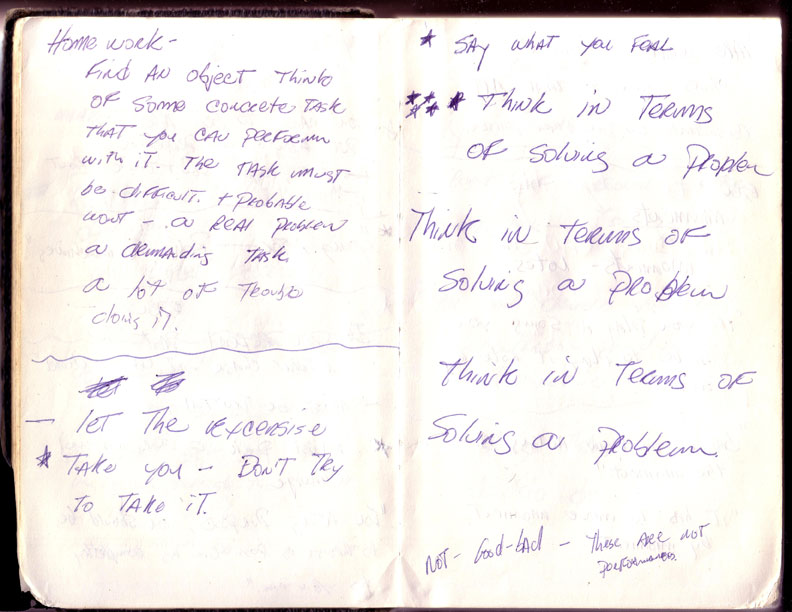 Home work-
Find An object Think
of some concrete task
that you can perform
with it. The task must
be difficult. + Probable
want - a real problem
a demanding task
a lot of trouble
doing it.
— let the excersise
* Take you - Don't try
to take it.
* Say what you feel
*** * Think in terms
of solving a problem
Think in terms of
solving a problem
Think in terms of
solving a problem.
Not - Good-bad - these are not
performances.